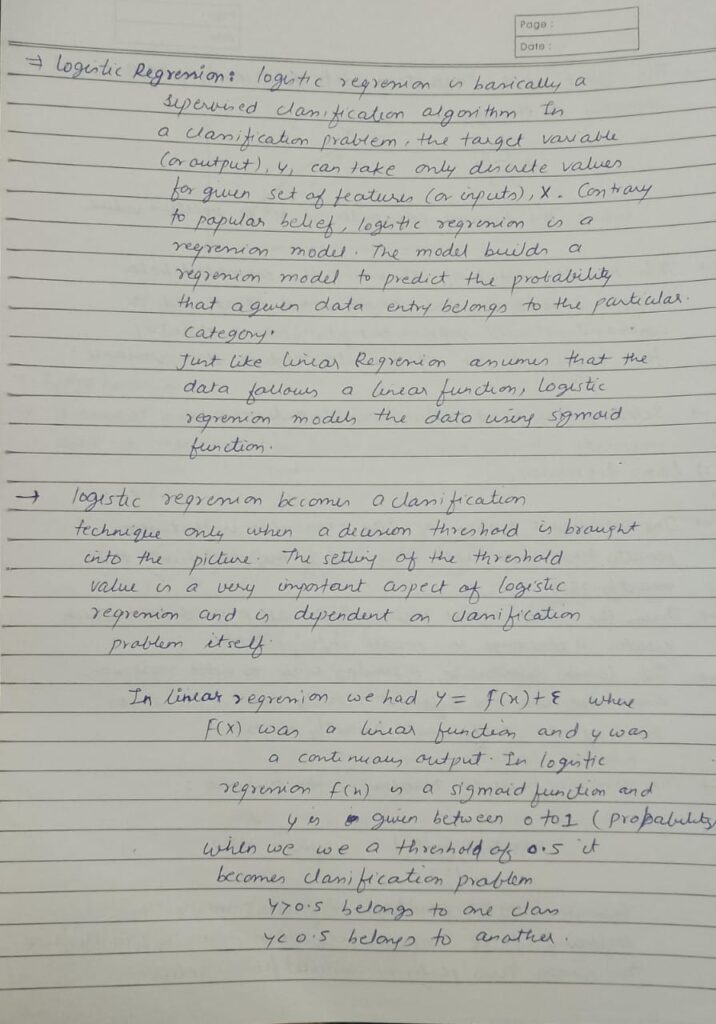 Page :
Date :
⇒ Logistic Regression: logistic regression is basically a
supervised classification algorithm. In
a classification problem, the target variable
(or output), y, can take only discrete values
for given set of features (or inputs), X. Contrary
to popular belief, logistic regression is a
regression model. The model builds a
regression model to predict the probability
that a given data entry belongs to the particular.
category.
Just like linear Regression assumes that the
data follows a linear function, Logistic
regression models the data using sigmoid
function.
→ logistic regression becomes a classification
technique only when a decision threshold is brought
into the picture. The setting of the threshold
value is a very important aspect of logistic
regression and is dependent on classification
problem itself.
In linear regression we had y = f(x) + ε where
F(X) was a linear function and y was
a continuous output. In logistic
regression f(x) is a sigmoid function and
y is given between 0 to 1 (probability
when we we a threshold of 0.5 it
becomes classification problem
y>0.5 belongs to one class
y<0.5 belongs to another.